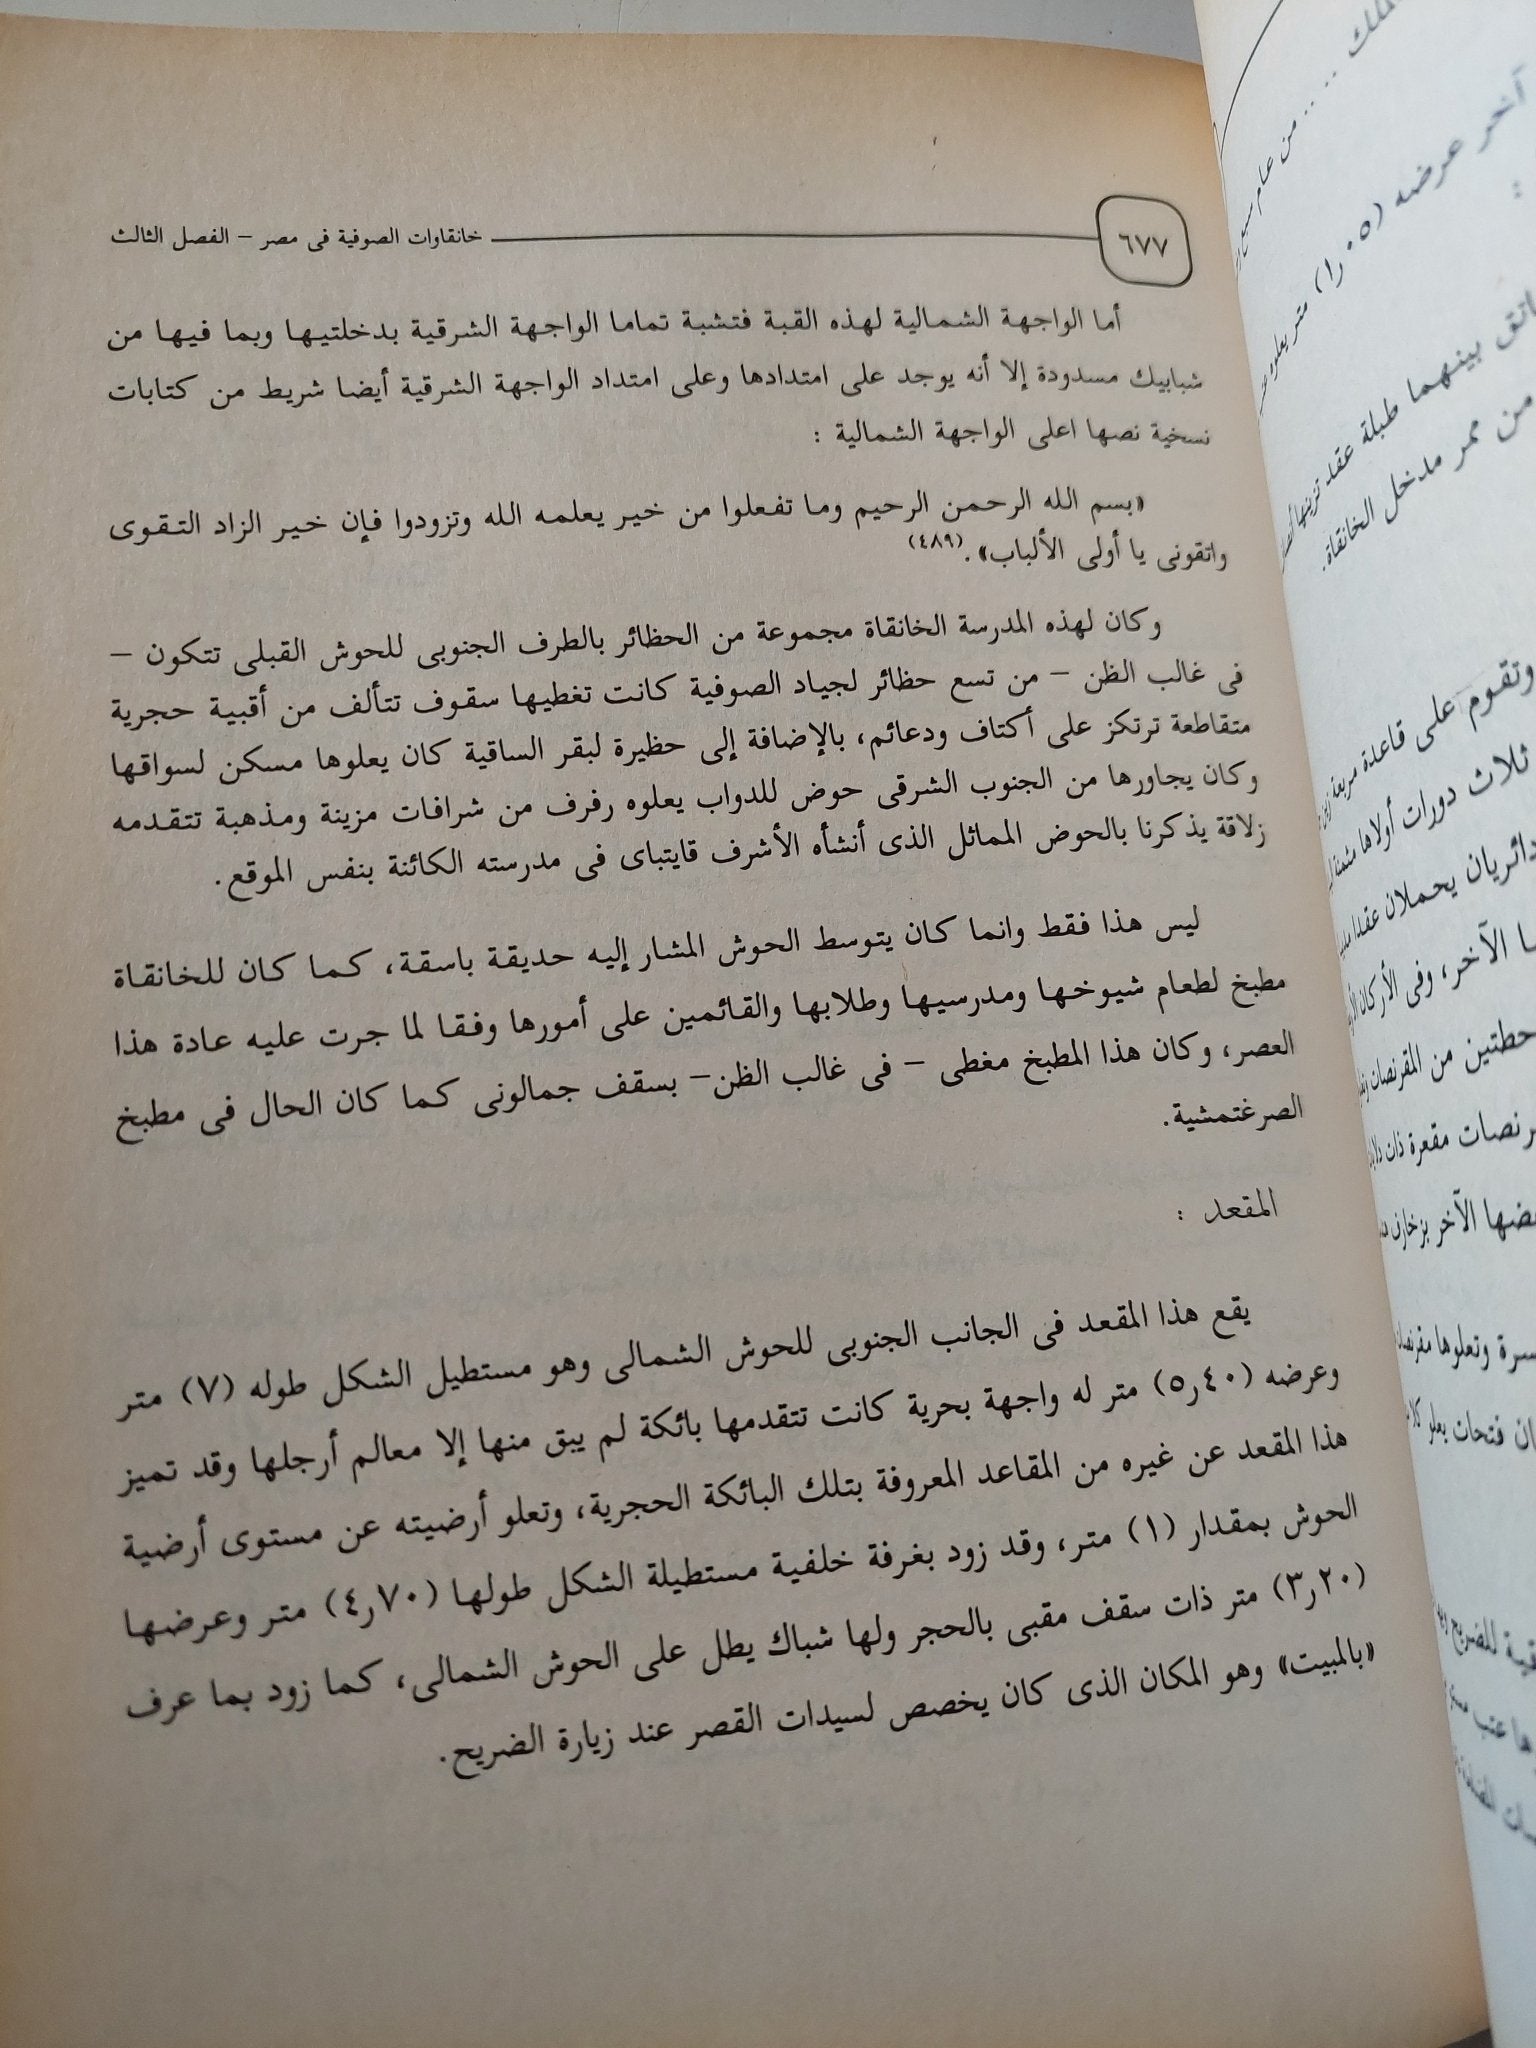 ٦٧٧
خانقاوات الصوفية فى مصر – الفصل الثالث
أما الواجهة الشمالية لهذه القبة فتشبة تماما الواجهة الشرقية بدخلتيها وبما فيها من
شبابيك مسدودة إلا أنه يوجد على امتدادها وعلى امتداد الواجهة الشرقية أيضا شريط من كتابات
نسخية نصها اعلى الواجهة الشمالية :
«بسم الله الرحمن الرحيم وما تفعلوا من خير يعلمه الله وتزودوا فإن خير الزاد التقوى
واتقونى يا أولى الألباب».(٤٨٩)
وكان لهذه المدرسة الخانقاة مجموعة من الحظائر بالطرف الجنوبى للحوش القبلى تتكون –
فى غالب الظن – من تسع حظائر لجياد الصوفية كانت تغطيها سقوف تتألف من أقبية حجرية
متقاطعة ترتكز على أكتاف ودعائم، بالإضافة إلى حظيرة لبقر الساقية كان يعلوها مسكن لسواقها
وكان يجاورها من الجنوب الشرقى حوض للدواب يعلوه رفرف من شرافات مزينة ومذهبة تتقدمه
زلاقة يذكرنا بالحوض المماثل الذى أنشأه الأشرف قايتباى فى مدرسته الكائنة بنفس الموقع.
ليس هذا فقط وانما كان يتوسط الحوش المشار إليه حديقة باسقة، كما كان للخانقاة
مطبخ لطعام شيوخها ومدرسيها وطلابها والقائمين على أمورها وفقا لما جرت عليه عادة هذا
العصر، وكان هذا المطبخ مغطى – فى غالب الظن– بسقف جمالونى كما كان الحال فى مطبخ
الصرغتمشية.
المقعد :
يقع هذا المقعد فى الجانب الجنوبى للحوش الشمالى وهو مستطيل الشكل طوله (٧) متر
وعرضه (٤٠ر٥) متر له واجهة بحرية كانت تتقدمها بائكة لم يبق منها إلا معالم أرجلها وقد تميز
هذا المقعد عن غيره من المقاعد المعروفة بتلك البائكة الحجرية، وتعلو أرضيته عن مستوى أرضية
الحوش بمقدار (١) متر، وقد زود بغرفة خلفية مستطيلة الشكل طولها (٧٠ر٤) متر وعرضها
(٢٠ر٣) متر ذات سقف مقبى بالحجر ولها شباك يطل على الحوش الشمالى، كما زود بما عرف
«بالمبيت» وهو المكان الذى كان يخصص لسيدات القصر عند زيارة الضريح.
من عام
آخر عرضه (٠٥ر١) متر يعلوه
بينهما طبلة عقد تزينها
من ممر مدخل الخانقاة.
وتقوم على قاعدة مربعة
ثلاث دورات أولاها مثمنة
دائريان يحملان عقدا
الآخر، وفى الأركان
حطتين من المقرنصات
مقعرة ذات
الآخر بزخارف
وتعلوها
فتحات يعلو
للضريح